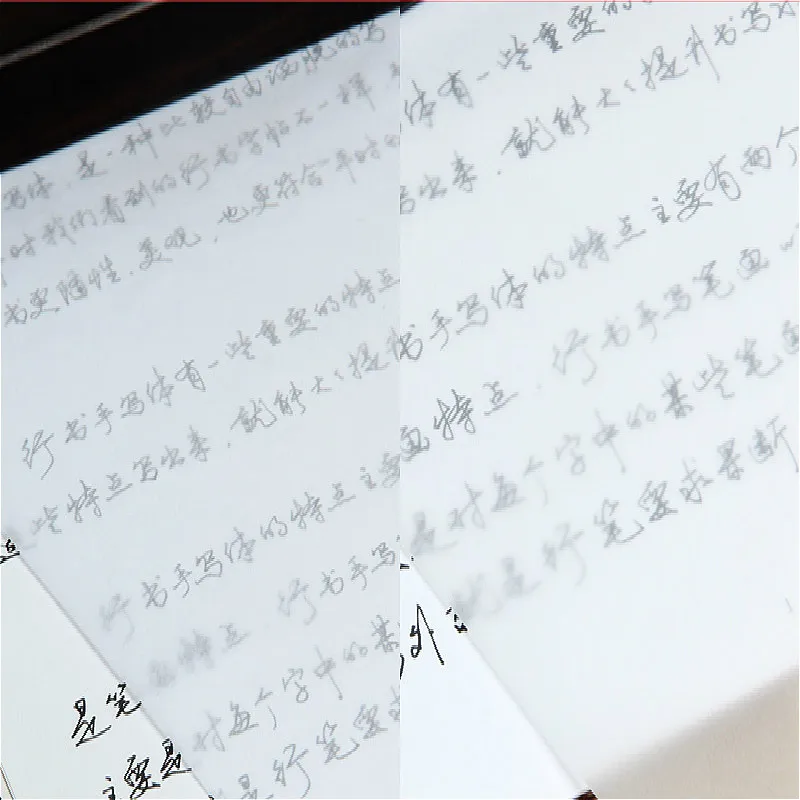 是一种比较自由流畅的写
写体,是一种比较自由流畅的写
时我们看到的行书字帖不一样
书更随性、美观,也更符合平时
行书手写体有一些重要的特点
些特点写出来,就能大大提升
行书手写体的特点主要
特点,行书手写
对每个字中的某
是行笔要求
是笔
主要是
体有一些重要的
写出来,就能大大提升书写
书手写体的特点主要有两个
画特点,行书手写笔画
是对每个字中的某些笔画
就是行笔要求果断
外